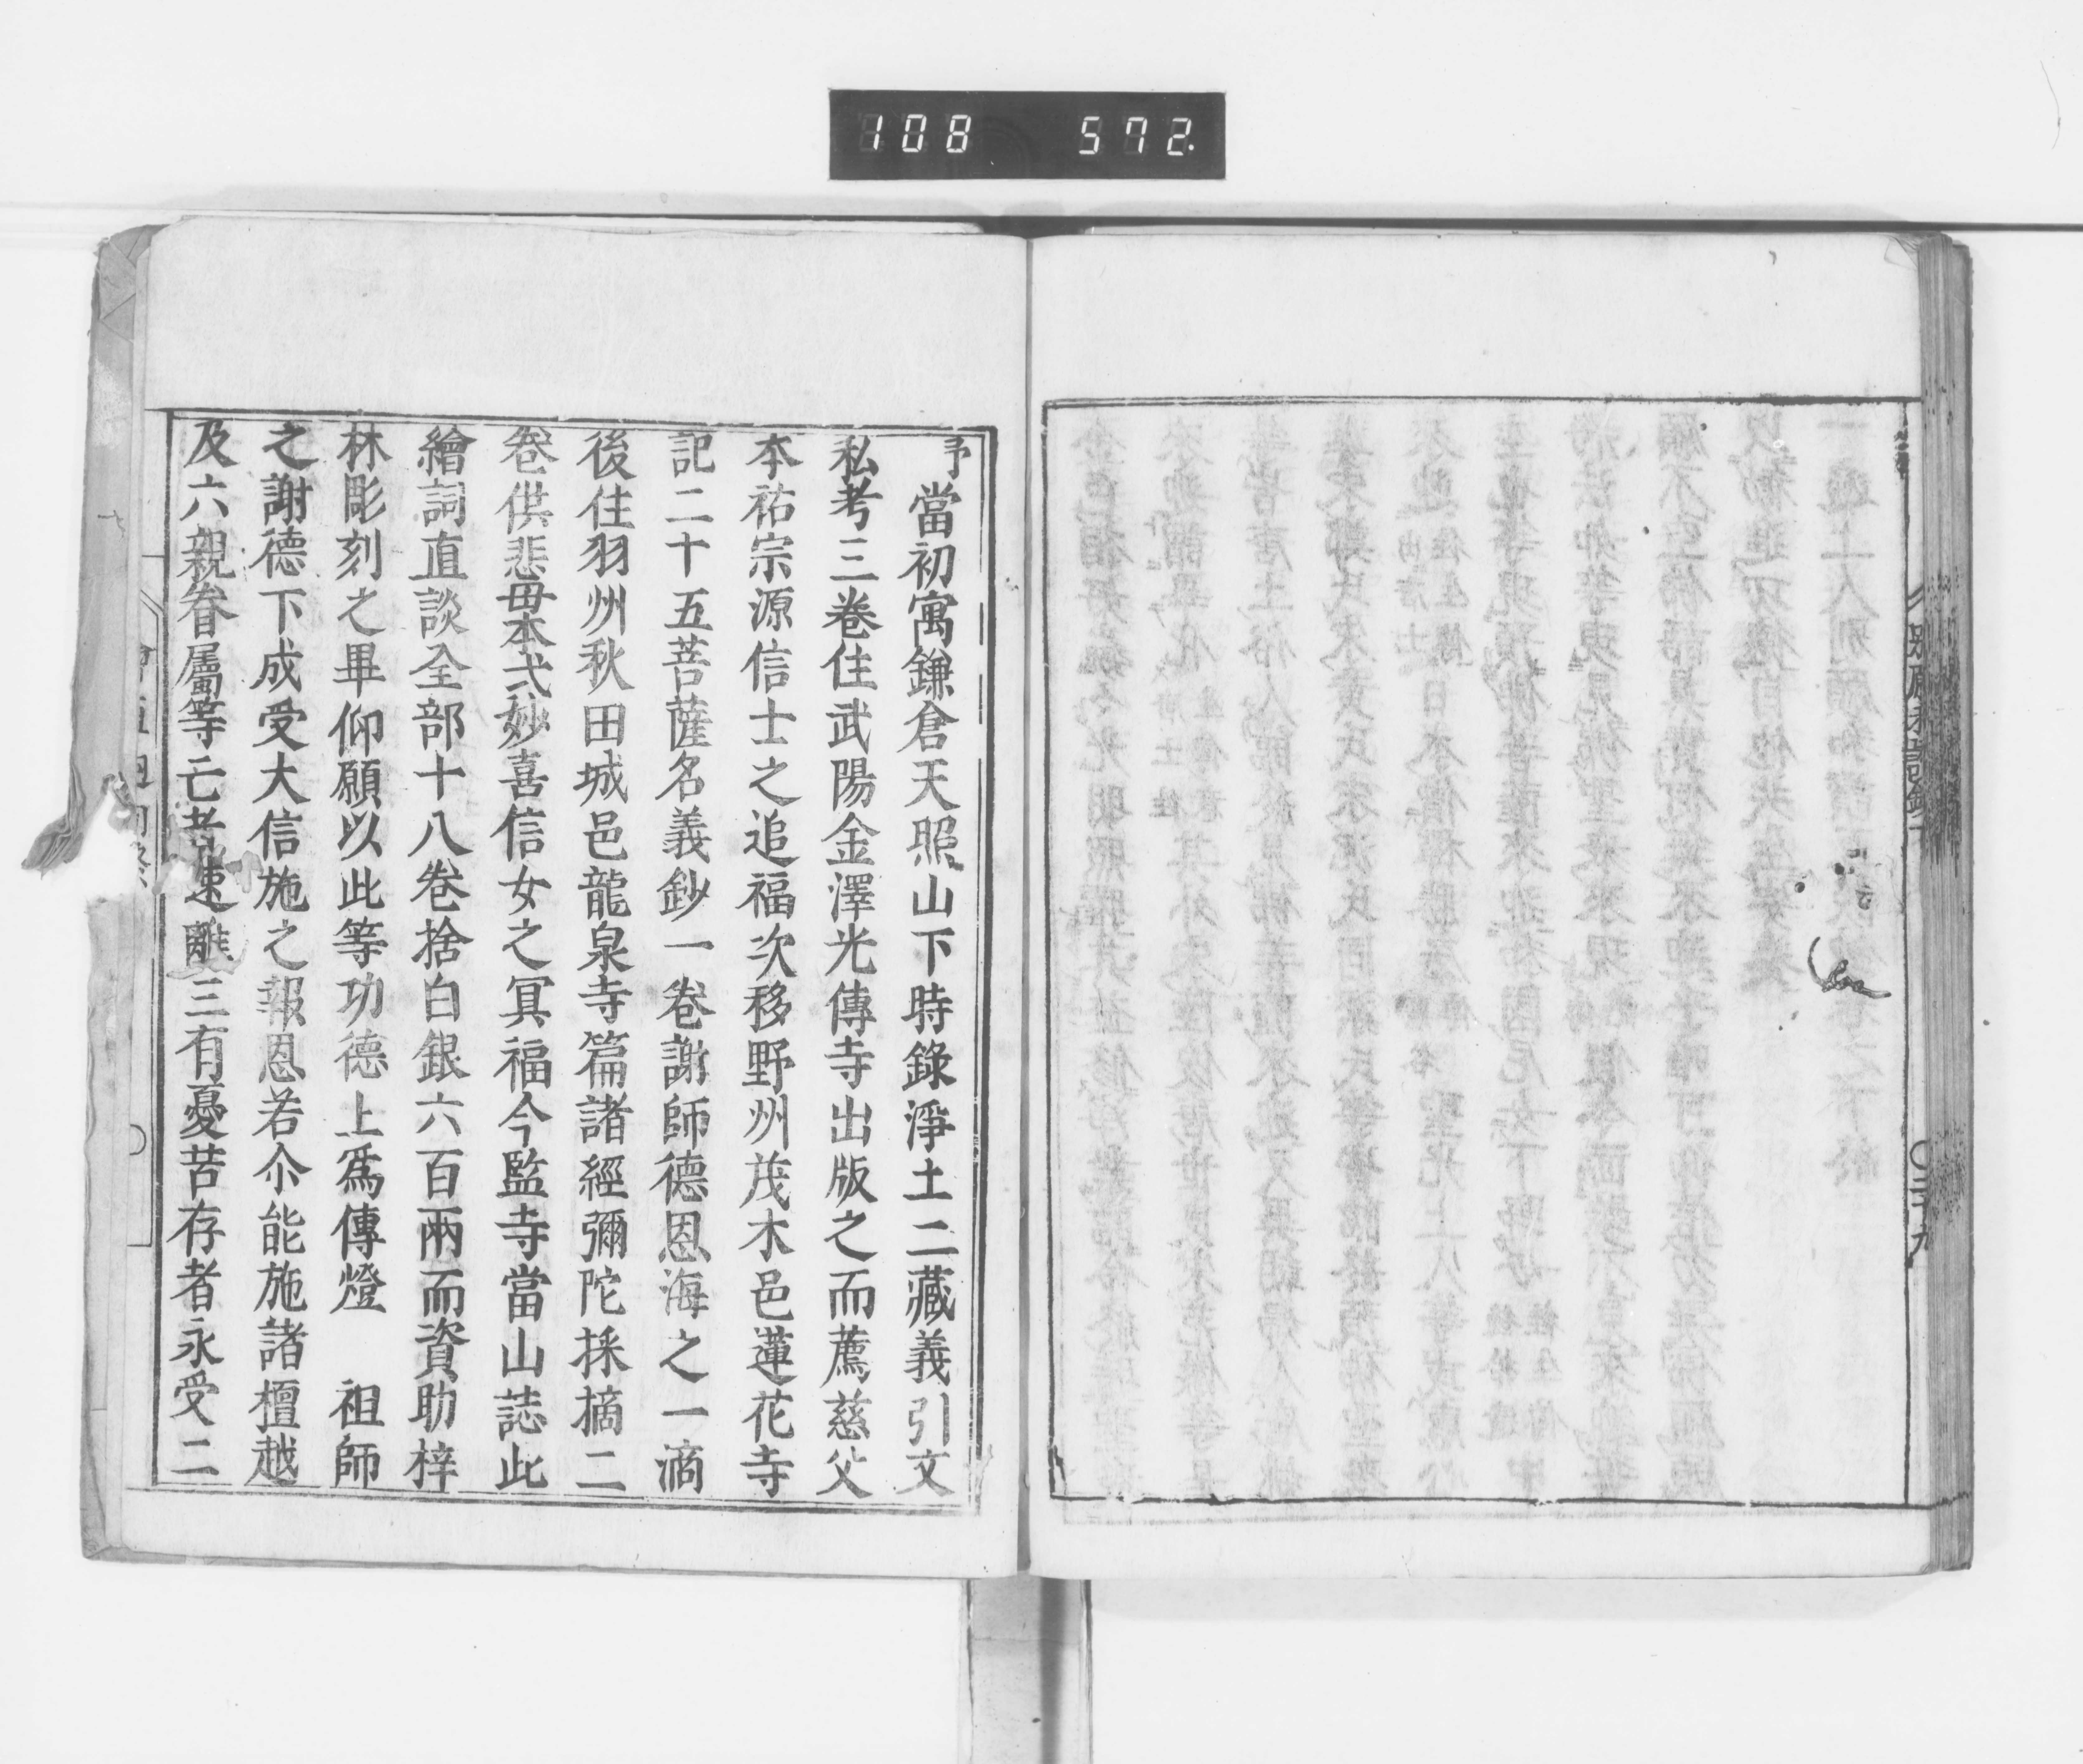 108 572
予當初寓鎌倉天照山下時錄淨土二藏義引文
私考三卷住武陽金澤光傳寺出版之而薦慈父
本祐宗源信士之追福次移野州茂木邑蓮花寺
記二十五菩薩名義鈔一卷謝師德恩海之一滴
後住羽州秋田城邑龍泉寺篇諸經彌陀採摘二
卷供悲母本弌妙喜信女之冥福今監寺當山誌此
繪詞直談全部十八卷捨白銀六百兩而資助梓
林彫刻之畢仰願以此等功德上爲傳燈　祖師
之謝德下成受大信施之報恩若尒能施諸檀越
及六親眷屬等亡者速離三有憂苦存者永受二